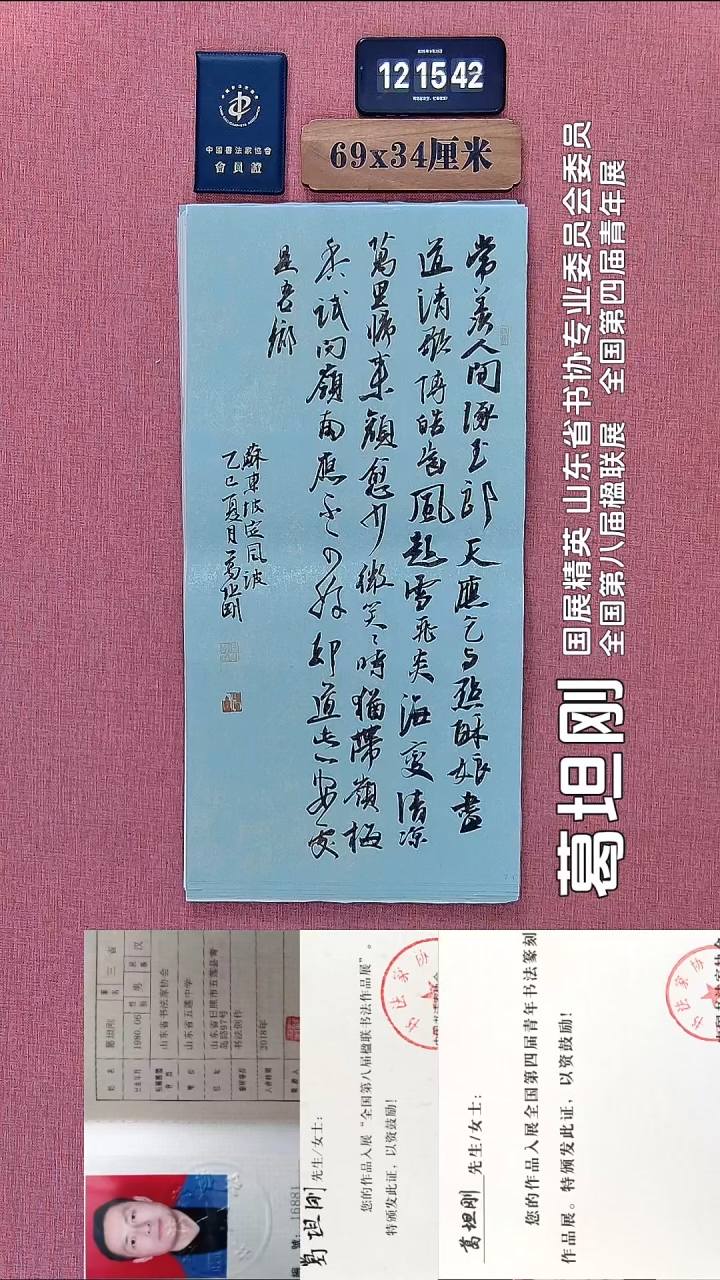 中國書法家協會
會員證
12 15 42
69x34厘米
常羨人间琢玉郎天應乞与點酥娘盡
道清歌傳皓齒風起雪飛炎海變清涼
萬里歸來顏愈少微笑〻時猶帶嶺梅
香試问嶺南應不好却道此心安處
是吾鄉
蘇東坡定風波
乙巳夏月葛坦剛
葛坦刚
国展精英 山东省书协专业委员会委员
全国第八届楹联展 全国第四届青年展
姓名 葛坦刚
性别 男
民族 汉
1980.06
山东省书法家协会
山东省五莲中学
山东省日照市五莲县青
岛路97号
书法创作
入会时间 2018年
编号：16881
葛坦刚 先生/女士：
您的作品入展“全国第八届楹联书法作品展”。
特颁发此证，以资鼓励！
葛坦刚 先生/女士：
您的作品入展全国第四届青年书法篆刻
作品展。特颁发此证，以资鼓励！